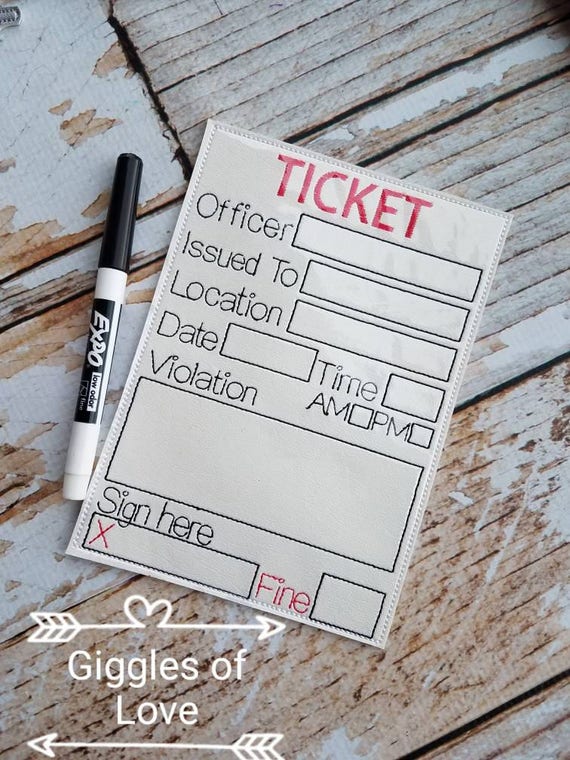 TICKET
Officer
Issued To
Location
Date Time
AM PM
Violation
Sign here
X
Fine
EXPO
low odor
fine
Giggles of
Love